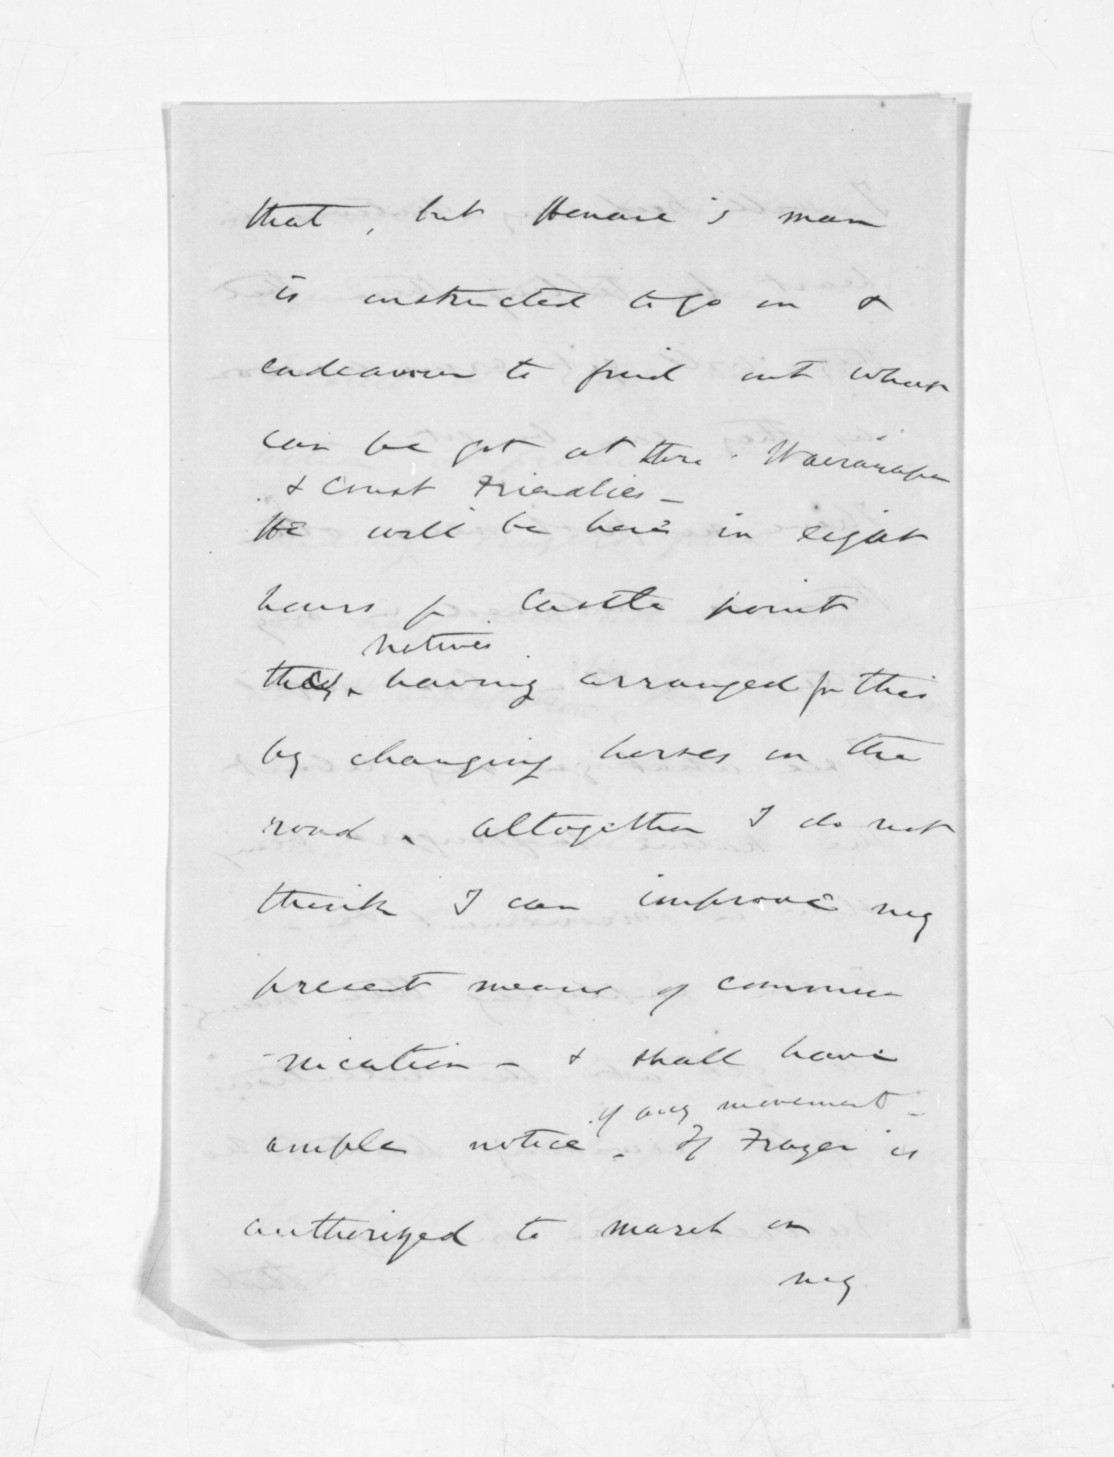 that, but Henare's man
is instructed to go on &
endeavour to find out what
can be got at there. Wairarapa
& Coast Friendlies -
He will be here in eight
hours fr Castle point
natives
they, having arranged for this
by changing horses on the
road. Altogether I do not
think I can improve my
present means of commu
nication - & shall have
of any movement -
ample notice. If Frazer is
authorized to march on
my